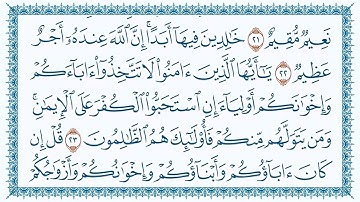 نَعِيمٌ مُّقِيمٌ ٢١ خَٰلِدِينَ فِيهَآ أَبَدًا ۚ إِنَّ ٱللَّهَ عِندَهُۥٓ أَجْرٌ
عَظِيمٌ ٢٢ يَٰٓأَيُّهَا ٱلَّذِينَ ءَامَنُوا۟ لَا تَتَّخِذُوٓا۟ ءَابَآءَكُمْ
وَإِخْوَٰنَكُمْ أَوْلِيَآءَ إِنِ ٱسْتَحَبُّوا۟ ٱلْكُفْرَ عَلَى ٱلْإِيمَٰنِ ۚ
وَمَن يَتَوَلَّهُم مِّنكُمْ فَأُو۟لَٰٓئِكَ هُمُ ٱلظَّٰلِمُونَ ٢٣ قُلْ إِن
كَانَ ءَابَآؤُكُمْ وَأَبْنَآؤُكُمْ وَإِخْوَٰنُكُمْ وَأَزْوَٰجُكُمْ